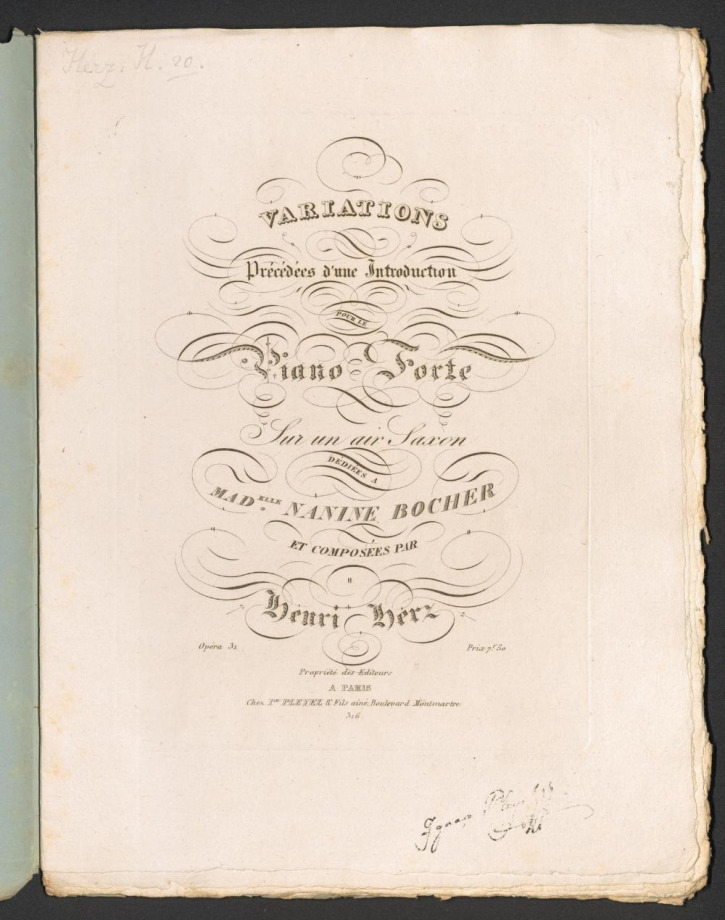 Herz. H. 20.
VARIATIONS
Précédées d'une Introduction
POUR LE
Piano-Forte
Sur un air Saxon
DÉDIÉES A
MAD.ELLE NANINE BOCHER
ET COMPOSÉES PAR
Henri Herz
Opéra 31 Prix 7f 50
Propriété des Editeurs
A PARIS
Chez I.ce PLEYEL & Fils ainé, Boulevard Montmartre.
316.